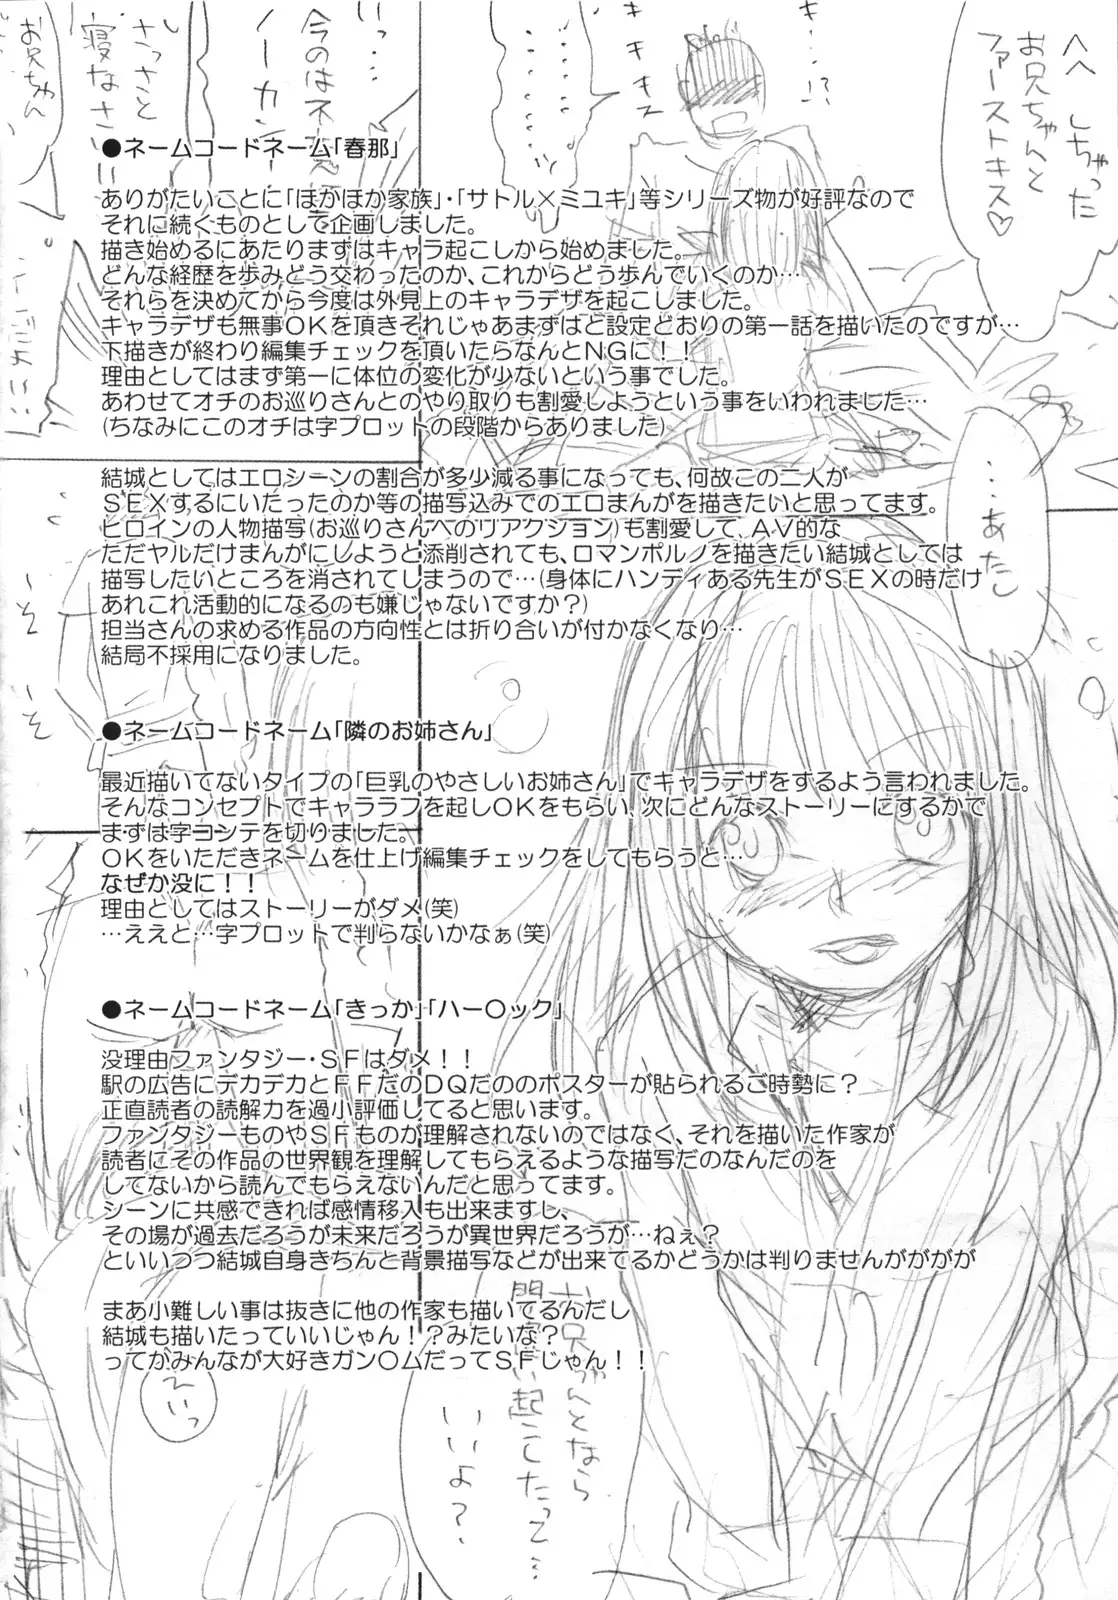 ●ネームコードネーム「春那」
ありがたいことに「ほかほか家族」・「サトル×ミユキ」等シリーズ物が好評なので
それに続くものとして企画しました。
描き始めるにあたりまずはキャラ起こしから始めました。
どんな経歴を歩みどう交わったのか、これからどう歩んでいくのか…
それらを決めてから今度は外見上のキャラデザを起こしました。
キャラデザも無事OKを頂きそれじゃあまずはと設定どおりの第一話を描いたのですが…
下描きが終わり編集チェックを頂いたらなんとNGに!!
理由としてはまず第一に体位の変化が少ないという事でした。
あわせてオチのお巡りさんとのやり取りも割愛しようという事をいわれました…
(ちなみにこのオチは字プロットの段階からありました)
結城としてはエロシーンの割合が多少減る事になっても、何故この二人が
SEXするにいたったのか等の描写込みでのエロまんがを描きたいと思ってます。
ヒロインの人物描写(お巡りさんへのリアクション)も割愛して、AV的な
ただヤルだけまんがにしようと添削されても、ロマンポルノを描きたい結城としては
描写したいところを消されてしまうので…(身体にハンディある先生がSEXの時だけ
あれこれ活動的になるのも嫌じゃないですか?)
担当さんの求める作品の方向性とは折り合いが付かなくなり…
結局不採用になりました。
●ネームコードネーム「隣のお姉さん」
最近描いてないタイプの「巨乳のやさしいお姉さん」でキャラデザをするよう言われました。
そんなコンセプトでキャララフを起しOKをもらい、次にどんなストーリーにするかで
まずは字コンテを切りました。
OKをいただきネームを仕上げ編集チェックをしてもらうと…
なぜか没に!!
理由としてはストーリーがダメ(笑)
…ええと…字プロットで判らないかなぁ(笑)
●ネームコードネーム「きっか」「ハー〇ック」
没理由ファンタジー・SFはダメ!!
駅の広告にデカデカとFFだのDQだののポスターが貼られるご時勢に?
正直読者の読解力を過小評価してると思います。
ファンタジーものやSFものが理解されないのではなく、それを描いた作家が
読者にその作品の世界観を理解してもらえるような描写だのなんだのを
してないから読んでもらえないんだと思ってます。
シーンに共感できれば感情移入も出来ますし、
その場が過去だろうが未来だろうが異世界だろうが…ねぇ?
といいつつ結城自身きちんと背景描写などが出来てるかどうかは判りませんがががが
まあ小難しい事は抜きに他の作家も描いてるんだし
結城も描いたっていいじゃん!?みたいな?
ってかみんなが大好きガン〇ムだってSFじゃん!!